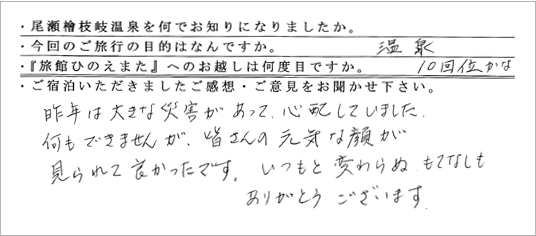 ・尾瀬檜枝岐温泉を何でお知りになりましたか。
・今回のご旅行の目的はなんですか。 温泉
・『旅館ひのえまた』へのお越しは何度目ですか。 10回位かな
・ご宿泊いただきましたご感想・ご意見をお聞かせ下さい。
昨年は大きな災害があって、心配していました。
何もできませんが、皆さんの元気な顔が
見られて良かったです。いつもと変わらぬ もてなしも
ありがとう ございます。